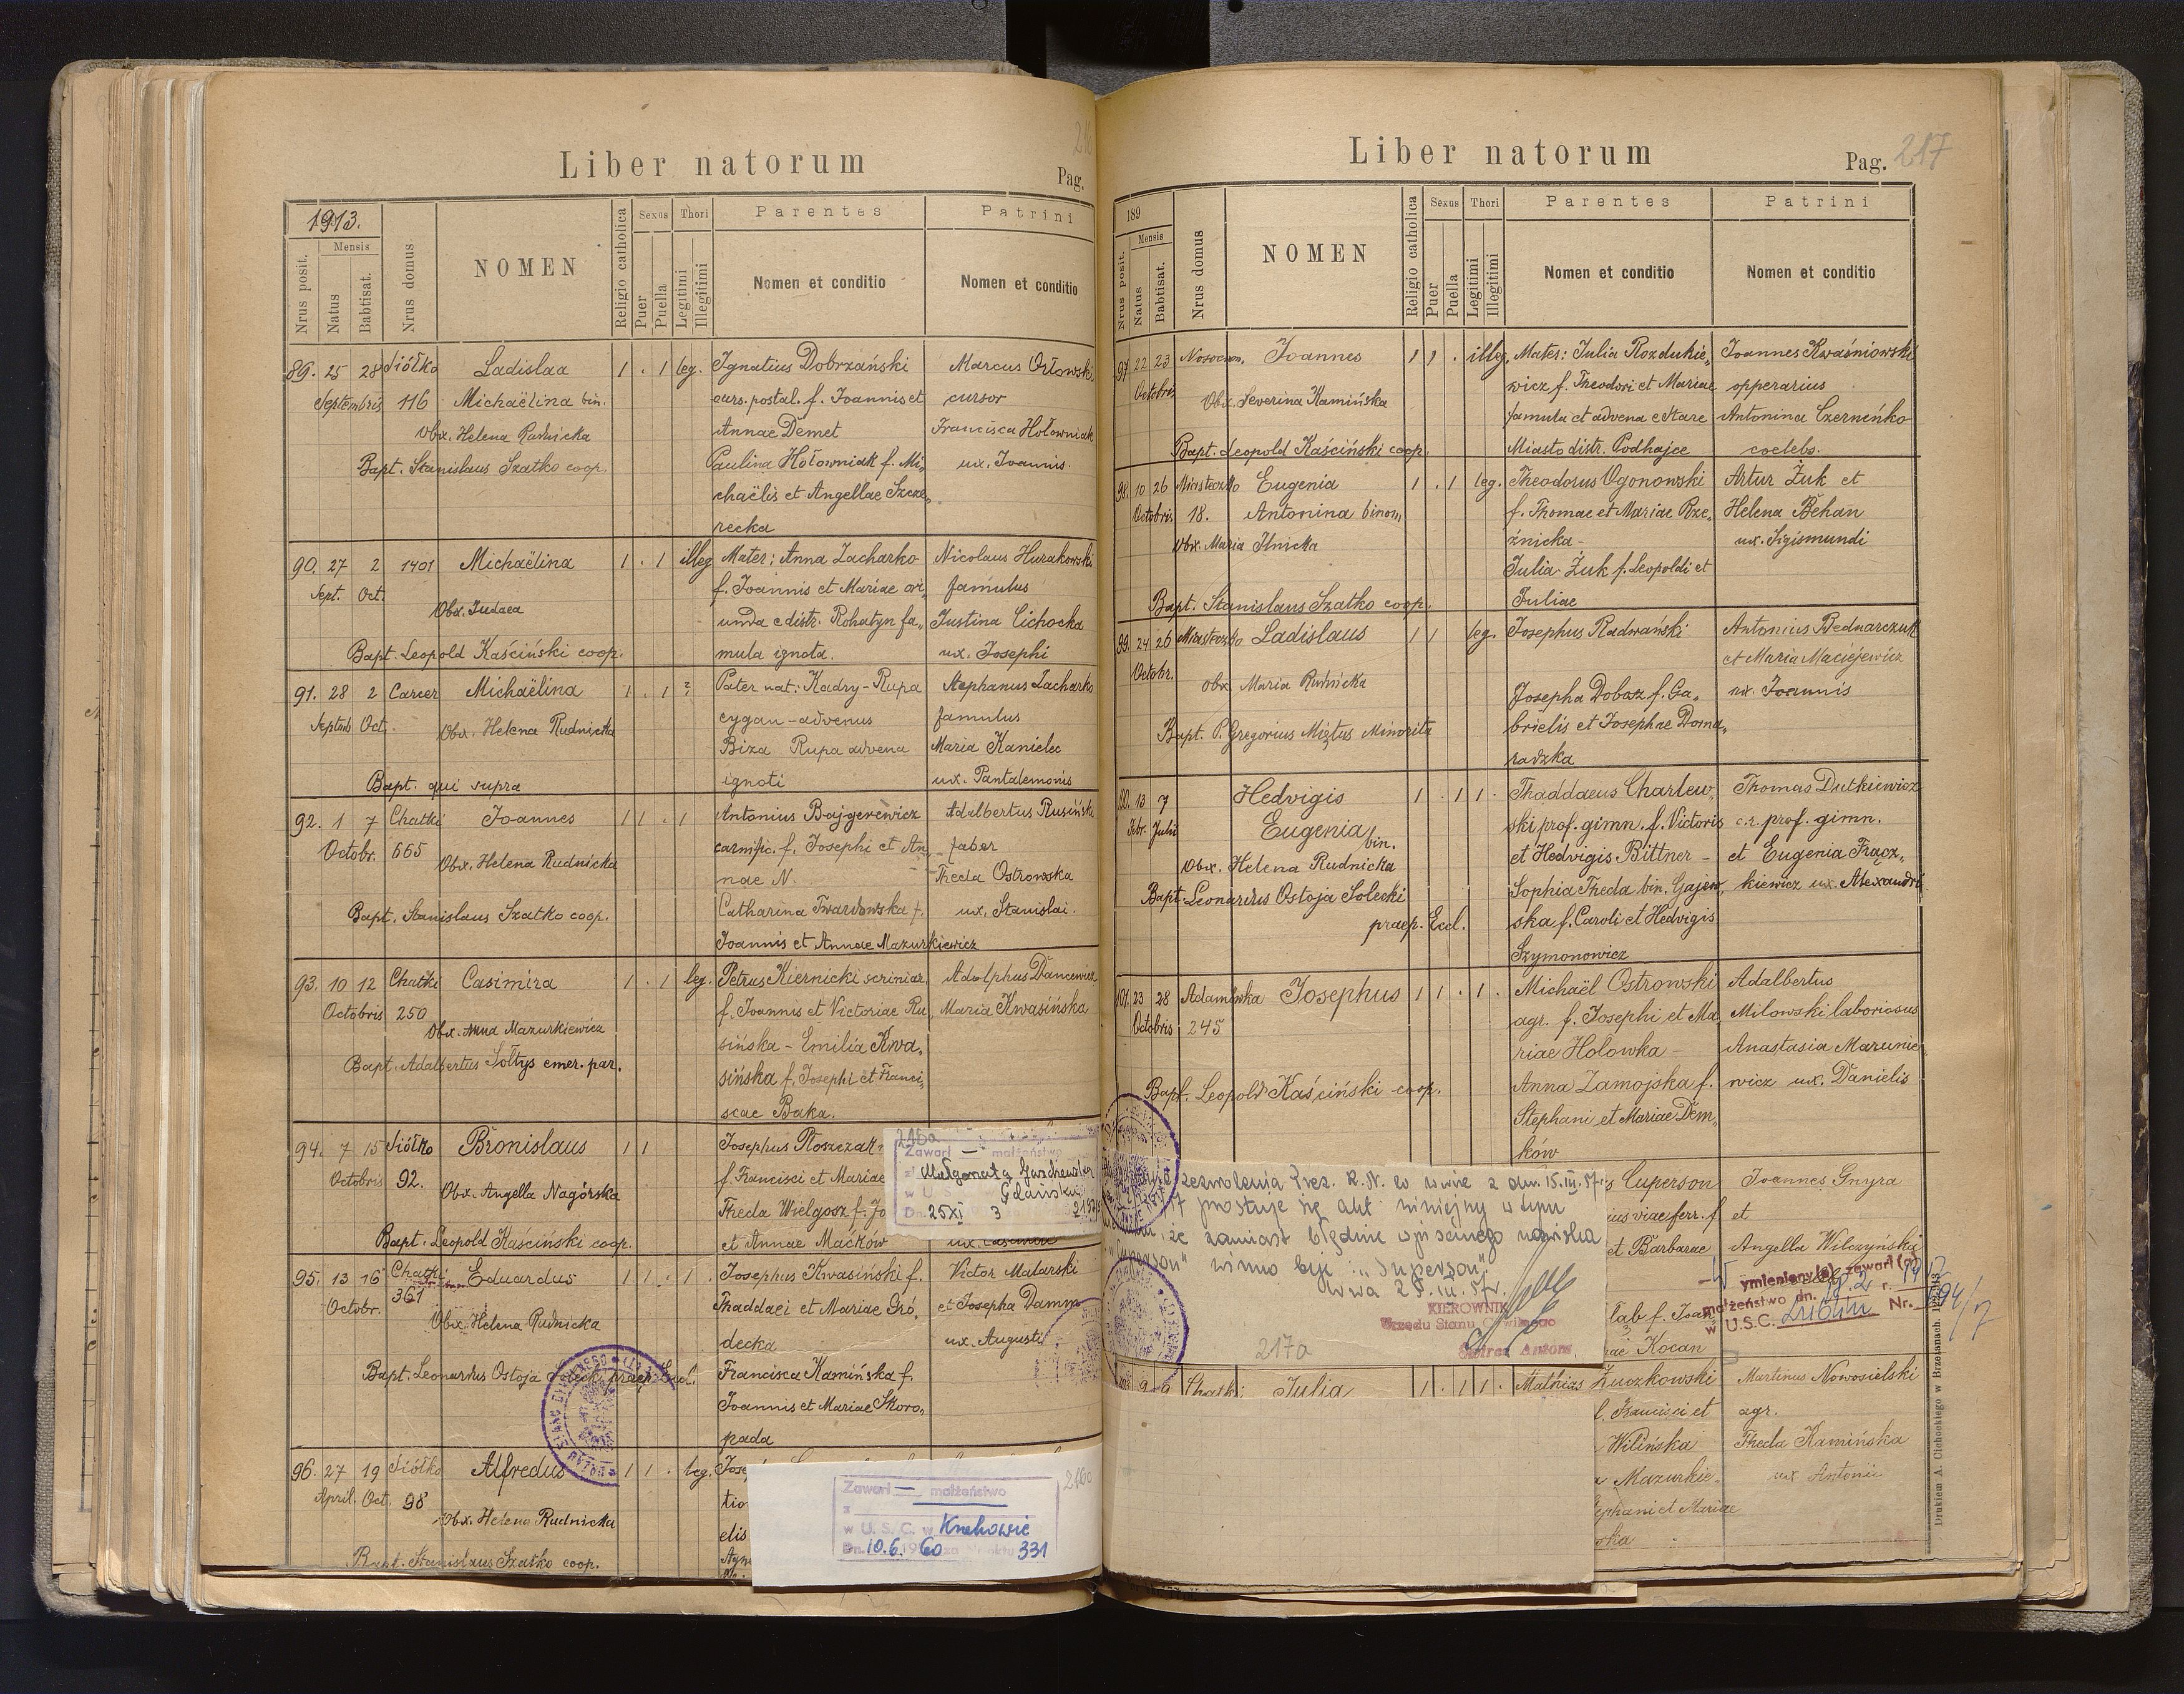 Liber natorum
Pag.
1913.
Nrus posit.
Mensis
Natus
Babtisat.
Nrus domus
NOMEN
Religio catholica
Sexus
Puer
Puella
Thori
Legitimi
Illegitimi
Parentes
Nomen et conditio
Patrini
Nomen et conditio
89. 25 28 Siółko Ladislaa 1 . 1 leg. Ignatius Dobrzański Marcus Orłowski
Septembris 116 Michaëlina bin. curs. postal. f. Joannis et cursor
Obx. Helena Rudnicka Annae Demet Francisca Hołowniak
Bapt. Stanislaus Szatko coop. Paulina Hołowniak f. Mi„ ux. Joannis.
chaëlis et Angellae Szcze„
recka
90. 27 2 1401 Michaëlina 1 . 1 illeg Mater: Anna Zacharko Nicolaus Hurakowski
Sept. Oct. f. Joannis et Mariae ori„ famulus
Obx. Judaea unda e distr. Rohatyn fa„ Justina Cichocka
Bapt. Leopold Kaściński coop. mula ignota. ux. Josephi
91. 28 2 Carcer Michaëlina 1 . 1 ? Pater nat: Kadry-Rupa Stephanus Zacharko
Septemb Oct. Obx. Helena Rudnicka cygan-advenus famulus
Biza Rupa advena Maria Kanielec
Bapt. qui supra ignoti ux. Pantalemonis
92. 1 7 Chatki Joannes 1 1 . 1 Antonius Bajgerewicz Adalbertus Rusiński
Octobr. 665 Obx. Helena Rudnicka carnific. f. Josephi et An„ faber
nae N. Thecla Ostrowska
Bapt. Stanislaus Szatko coop. Catharina Twardowska f. ux. Stanislai.
Joannis et Annae Mazurkiewicz
93. 10 12 Chatki Casimira 1 . 1 leg. Petrus Kiernicki scriniar. Adolphus Dancewicz
Octobris 250 f. Joannis et Victoriae Ru„ Maria Kwasińska
Obx. Anna Mazurkiewicz sińska - Emilia Kwa„
Bapt. Adalbertus Sołtys emer. par. sińska f. Josephi et Franci„
scae Baka.
94. 7 15 Siółko Bronislaus 1 1 Josephus Płoszczak
Octobris 92. f. Francisci et Mariae
Obx. Angella Nagórska Thecla Wielgosz f. Jo
Bapt. Leopold Kaściński coop. et Annae Maćków
216a
Zawarł — małżeństwo
z Małgorzatą
w U.S.C. Gdańsku
Dn. 25 XI 3
95. 13 16 Chatki Eduardus 1 1 . 1 . Josephus Kwasiński f. Victor Malarski
Octobr. 361 Thaddaei et Mariae Gró„ et Josepha Damm
Obx. Helena Rudnicka decka ux. Augusti
Bapt. Leonardus Ostoja Solecki praep. Eccl. Francisca Kamińska f.
Joannis et Mariae Skoro„
pada
96. 27 19 Siółko Alfredus 1 1 . leg. Jose
April. Oct. 98 tio
Obx. Helena Rudnicka elis
Bapt. Stanislaus Szatko coop.
Zawarł — małżeństwo
z
w U. S. C. w Krakowie
Dn. 10.6. 1960 za Nr aktu 331
Liber natorum
Pag. 217
189
Nrus posit.
Mensis
Natus
Babtisat.
Nrus domus
NOMEN
Religio catholica
Sexus
Puer
Puella
Thori
Legitimi
Illegitimi
Parentes
Nomen et conditio
Patrini
Nomen et conditio
97 22 23 Joannes 1 1 . illeg. Mater: Julia Rozdukie„ Joannes Kwaśniowski
Octobris Obx. Severina Kamińska wicz f. Theodori et Mariae opperarius
famula et advena e Stare Antonina Czerneńko
Bapt. Leopold Kaściński coop. Miasto distr. Podhajce coelebs.
98. 10 26 Miasteczko Eugenia 1 . 1 leg. Theodorus Ogonowski Artur Żuk et
Octobris 18. Antonina binom, f. Thomae et Mariae Rze„ Helena Behan
Obx. Maria Ilnicka źnicka - ux. Sigismundi
Julia Żuk f. Leopoldi et
Bapt. Stanislaus Szatko coop. Juliae
99. 24 26 Miasteczko Ladislaus 1 1 leg. Josephus Radwański Antonius Bednarczuk
Octobr. et Maria Maciejewicz
Obx Maria Rudnicka Josepha Dobosz f. Ga„ ux. Joannis
Bapt. P. Gregorius Miętus Minorita brielis et Josephae Doma„
radzka
100. 13 7 Hedvigis 1 . 1 1 . Thaddaeus Charlew„ Thomas Dutkiewicz
Febr. Julii Eugenia bin. ski prof. gimn. f. Victoris c.r. prof. gimn.
Obx. Helena Rudnicka et Hedvigis Bittner - et Eugenia Frącz„
Bapt. Leonardus Ostoja Solecki Sophia Thecla bin. Gajew„ kiewicz ux. Alexandri
praep. Eccl. ska f. Caroli et Hedvigis
Szymonowicz
101. 23 28 Adamówka Josephus 1 1 . 1 . Michaël Ostrowski Adalbertus
Octobris 245 agr. f. Josephi et Ma„ Milowski laboriosus
riae Holowka - Anastasia Marunie
Bapt. Leopold Kaściński coop. Anna Zamojska f. wicz ux. Danielis
Stephani et Mariae Dem„
ków
zezwolenia Prez. R.N. w 15.III.57
prostuje się akt niniejszy w tym
że zamiast błędnie wpisanego nazwiska
winno być: „Superson"
KIEROWNIK
Urzędu Stanu Cywilnego
217a
Cuperson Joannes Gnyra
ius viae ferr. f. et
et Barbarae Angella Wilczyńska
lab f. Joan
riae Kocan
W ymieniony(a) zawarł(a)
małżeństwo dn.
w U.S.C. Lublin Nr. 694/
9 6 Chatki Julia 1 . 1 1 . Mathias Żuczkowski Martinus Nowosielski
f. Francisci et agr.
Wilińska Thecla Kamińska
a Mazurkie„ ux Antonii
Stephani et Mariae
Drukiem A. Cichockiego w Brzeżanach.